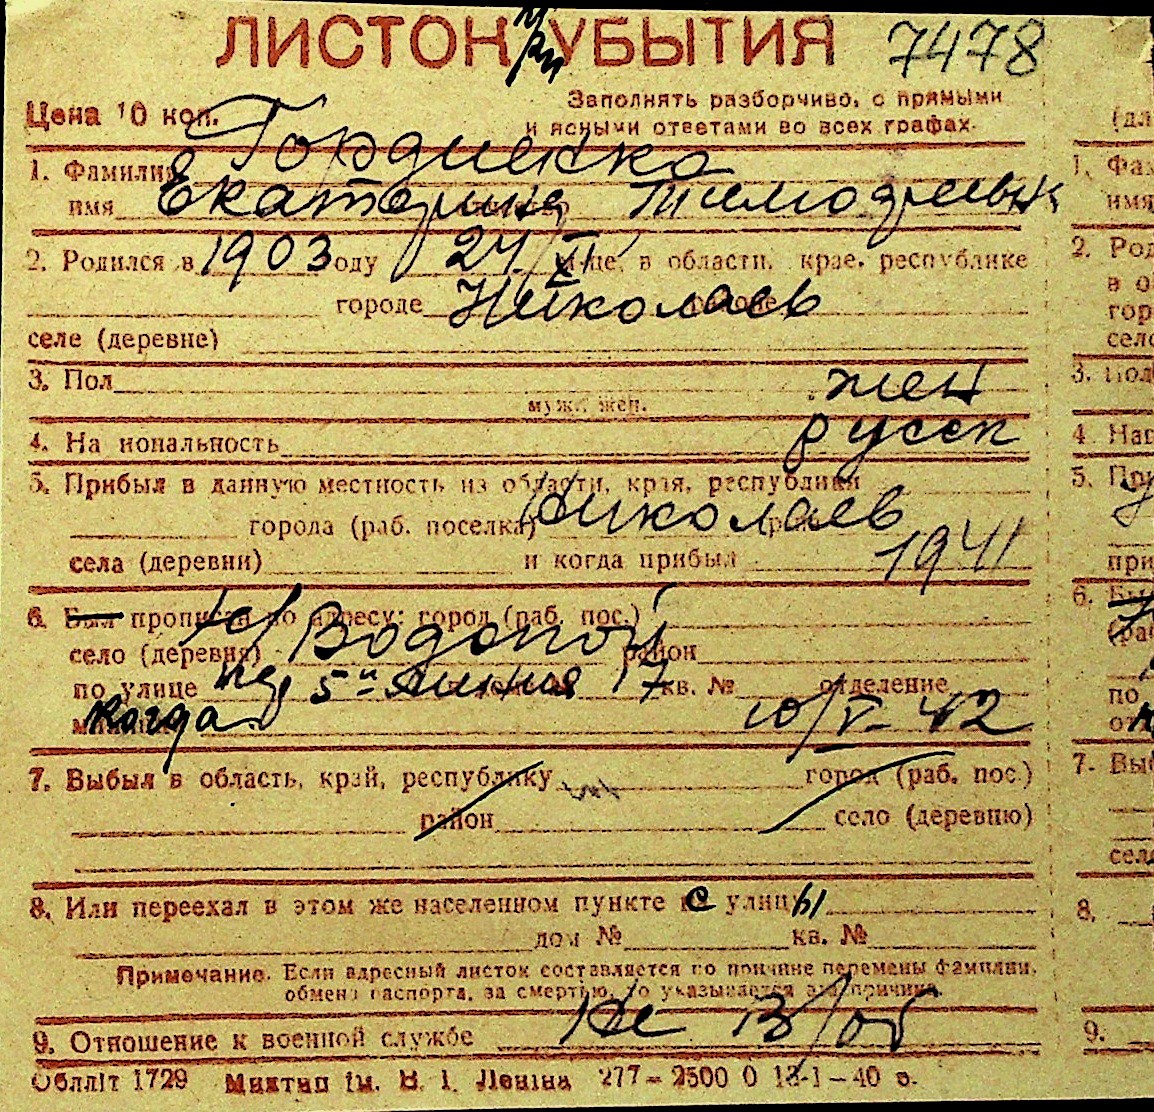 ЛИСТОК УБЫТИЯ 7478
Цена 10 коп. Заполнять разборчиво, с прямыми
и ясными ответами во всех графах.
1. Фамилия Гордиенко
имя Екатерина Тимофеевн
2. Родился в 1903 году 24/XI м-це, в области, крае, республике
городе Николаев
селе (деревне)
3. Пол жен
муж., жен.
4. На иональность русск
5. Прибыл в данную местность из области, края, республики
города (раб. поселка) Николаев
села (деревни) и когда прибыл 1941
6. Был прописан по адресу: город (раб. пос.)
село (деревня) Водопой район
по улице 5 линия 17 кв. № отделение
когда 10/V-42
7. Выбыл в область, край, республику город (раб. пос.)
район село (деревню)
8. Или переехал в этом же населенном пункте с улицы
дом № кв. №
Примечание. Если адресный листок составляется по причине перемены фамилии,
обмена паспорта, за смертью, то указывается эта причина.
9. Отношение к военной службе Не в/об
Обллiт 1729 Миктип iм. В. I. Ленiна 277 – 2500 0 13-1 – 40 г.
(дл
1. Фа
имя
2. Род
в о
гор
село
3. Пол
4. Нац
5. При
при
6. Был
(ра
по
от
7. Выб
село
8.
9.